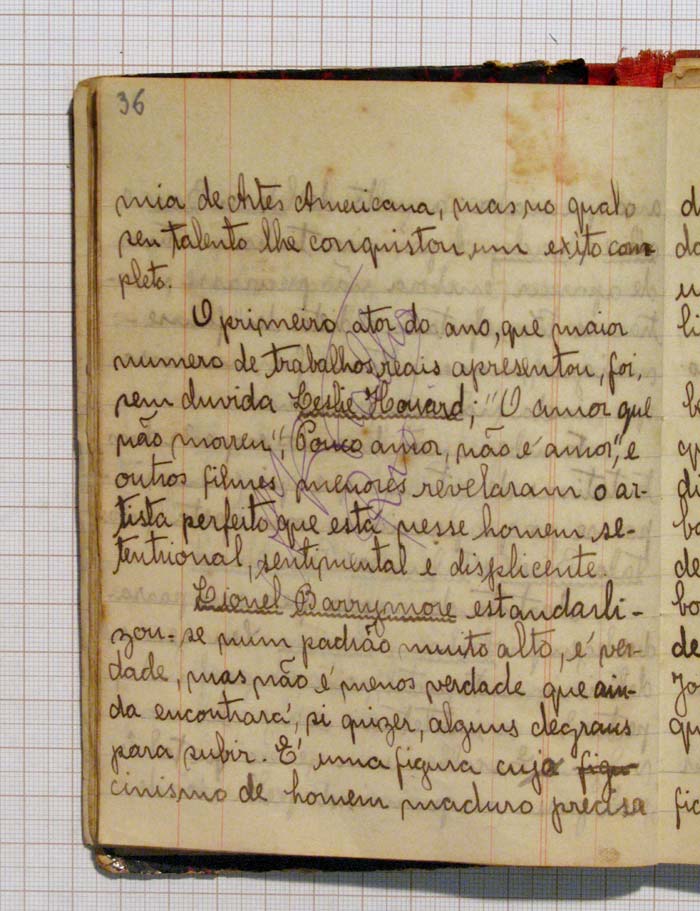 36
mia de Artes Americana, mas no qual o
seu talento lhe conquistou um exito com-
pleto.
O primeiro ator do ano, que maior
numero de trabalhos reais apresentou, foi,
sem duvida Leslie Howard; "O amor que
não morreu", Pouco amor, não é amor", e
outros filmes menores revelaram o ar-
tista perfeito que está nesse homem se-
tentrional, sentimental e displicente.
Lionel Barrymore estandarli-
zou-se num padrão muito alto, é ver-
dade, mas não é menos verdade que ain-
da encontrará, si quizer, alguns degraus
para subir. É uma figura cujo figu
cinismo de homem maduro precisa